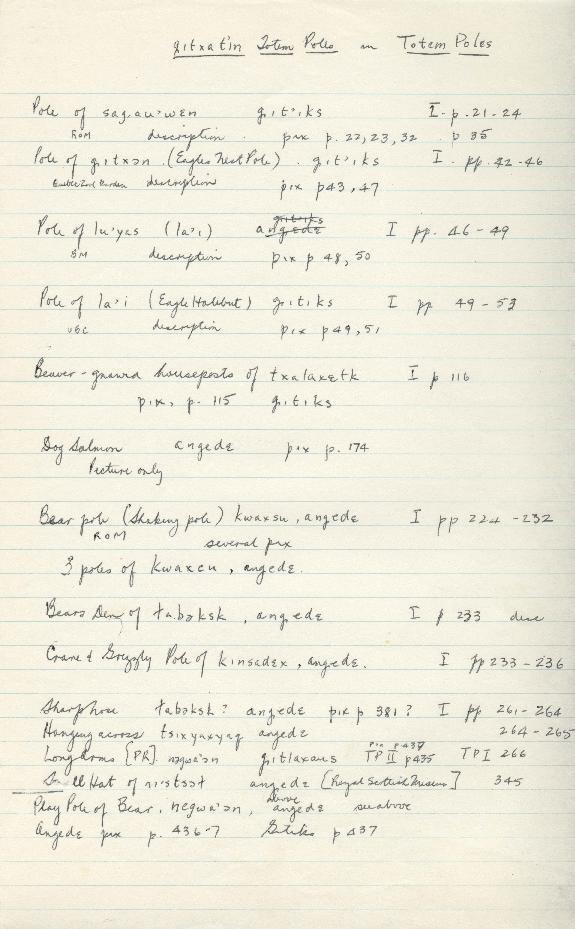 gitxat'in Totem Poles in Totem Poles
Pole of sag.au'wen git'iks I. p. 21-24
ROM description. pix p. 22, 23, 32 p 35
Pole of gitxən. (Eagles Nest Pole). git'iks I. pp. 42-46
description pix p 43, 47
Pole of lu'yas (la'i) angedɛ I pp. 46-49
description pix p 48, 50
Pole of la'i (Eagle Halibut) gitiks I pp 49-53
UBC description pix p 49, 51
Beaver-gnawed houseposts of txalaxɛtk I p 116
pix, p. 115 gitiks
Dog Salmon angedɛ pix p. 174
Picture only
Bear pole (Shaking pole) kwaxsu, angedɛ I pp 224-232
ROM several pix
3 poles of kwaxcu, angedɛ.
Bears Den of tabəksk, angedɛ I p 233 desc
Crane & Grizzly Pole of kinsadɛx, angedɛ. I pp 233-236
Sharpnose tabəksk? angedɛ pix p 381? I pp 261-264
Hanging across tsixyaxyaq angedɛ 264-265
pix p 437
Long Arms [PR] nəgwa'ən gitlaxaus TP II p 435 TPI 266
Hat of ni'stsət angedɛ [Royal Scottish Museum] 345
Above
Play Pole of Bear, negwa'ən, angedɛ see above
Angedɛ pix p. 436-7 Gitiks p 437